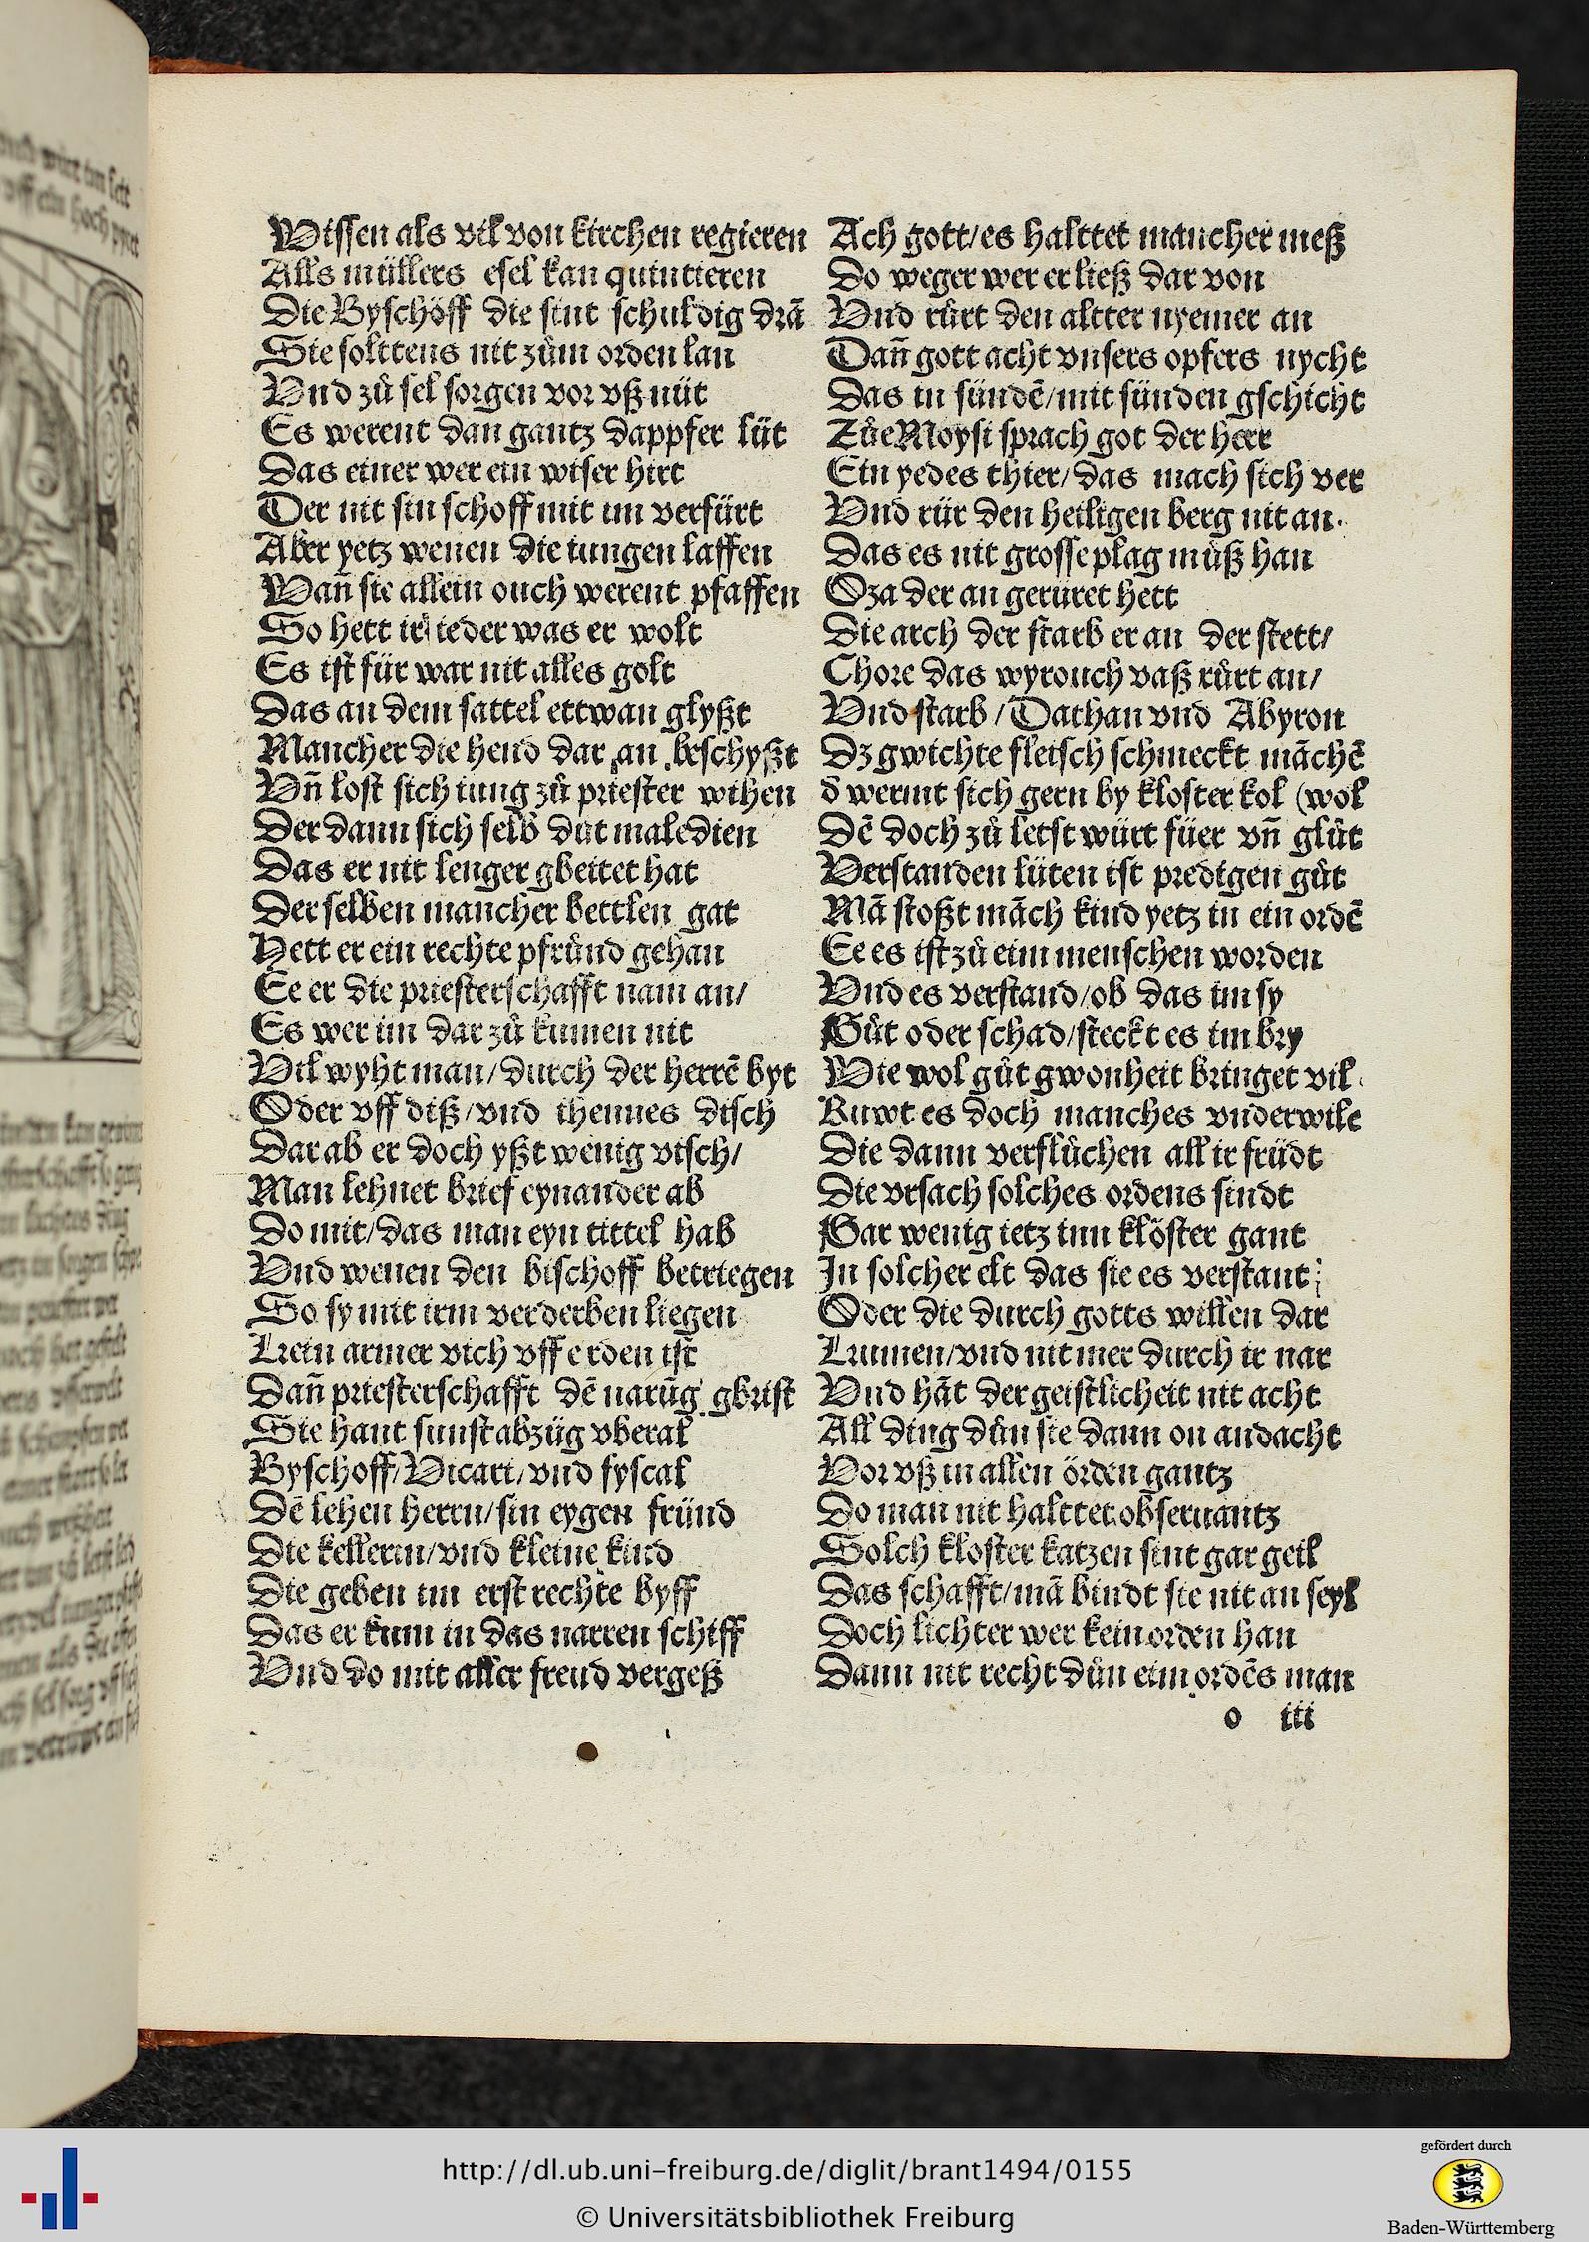 Wissen als vil von kirchen regieren
Alls müllers esel kan quintieren
Die Byschöff die sint schuldig drã
Sie solttens nit zům orden lan
Vnd zů sel sorgen vor vß nüt
Es werent dan gantz dappfer lüt
Das einer wer ein wiser hirt
Der nit sin schoff mit im verfürt
Aber yetz wenen die iungen laffen
Wañ sie allein ouch werent pfaffen
So hett ir ieder was er wolt
Es ist für war nit alles golt
Das an dem sattel ettwan glyßt
Mancher die hend dar an beschyßt
Vñ lost sich iung zů priester wihen
Der dann sich selb důt maledien
Das er nit lenger gbeitet hat
Der selben mancher bettlen gat
Hett er ein rechte pfrůnd gehan
Ee er die priesterschafft nam an/
Es wer im dar zů kumen nit
Vil wyht man/durch der herrẽ byt
Oder vff diß/vnd ihennes disch
Dar ab er doch yßt wenig visch/
Man lehnet brief eynander ab
Do mit/das man eyn tittel hab
Vnd wenen den bischoff betriegen
So sy mit irm verderben liegen
Kein armer vich vff erden ist
Dañ priesterschafft dẽ narũg gbrist
Sie hant sunst abzüg vberal
Byschoff/Vicari/vnd fyscal
Dẽ lehen herrn/sin eygen fründ
Die kellerin/vnd kleine kind
Die geben im erst rechte byff
Das er kum in das narren schiff
Vnd do mit aller freud vergeß
Ach gott/es halttet mancher meß
Do weger wer er ließ dar von
Vnd růrt den altter nyemer an
Dañ gott acht vnsers opfers nycht
Das in sündẽ/mit sünden gschicht
Zůe Moysi sprach got der herr
Ein yedes thier/das mach sich ver
Vnd rür den heiligen berg nit an.
Das es nit grosse plag müß han
Oza der an geruret hett
Die arch der starb er an der stett/
Chore das wyrouch vaß růrt an/
Vnd starb/Dathan vnd Abyron
Dz gwichte fleisch schmeckt mãchẽ
d wermt sich gern by kloster kol (wol
Dẽ doch zů letst würt füer vñ glůt
Verstanden lüten ist predigen gůt
Mã stoßt mãch kind yetz in ein ordẽ
Ee es ist zů eim menschen worden
Vnd es verstand/ob das im sy
Gůt oder schad/steckt es im bry
Wie wol gůt gwonheit bringet vil
Ruwt es doch manches vnderwile
Die dann verflůchen all ir früdt
Die vrsach solches ordens sindt
Gar wenig ietz inn klöster gant
In solcher elt das sie es verstant
Oder die durch gotts willen dar
Kumen/vnd nit mer durch ir nar
Vnd hãt der geistlicheit nit acht
All ding důn sie dann on andacht
Vor vß in allen örden gantz
Do man nit halttet obseruantz
Solch kloster katzen sint gar geil
Das schafft/mã bindt sie nit an seyl
Doch lichter wer kein orden han
Dann nit recht důn eim ordẽs man
o iii
http://dl.ub.uni-freiburg.de/diglit/brant1494/0155
© Universitätsbibliothek Freiburg
gefördert durch
Baden-Württemberg